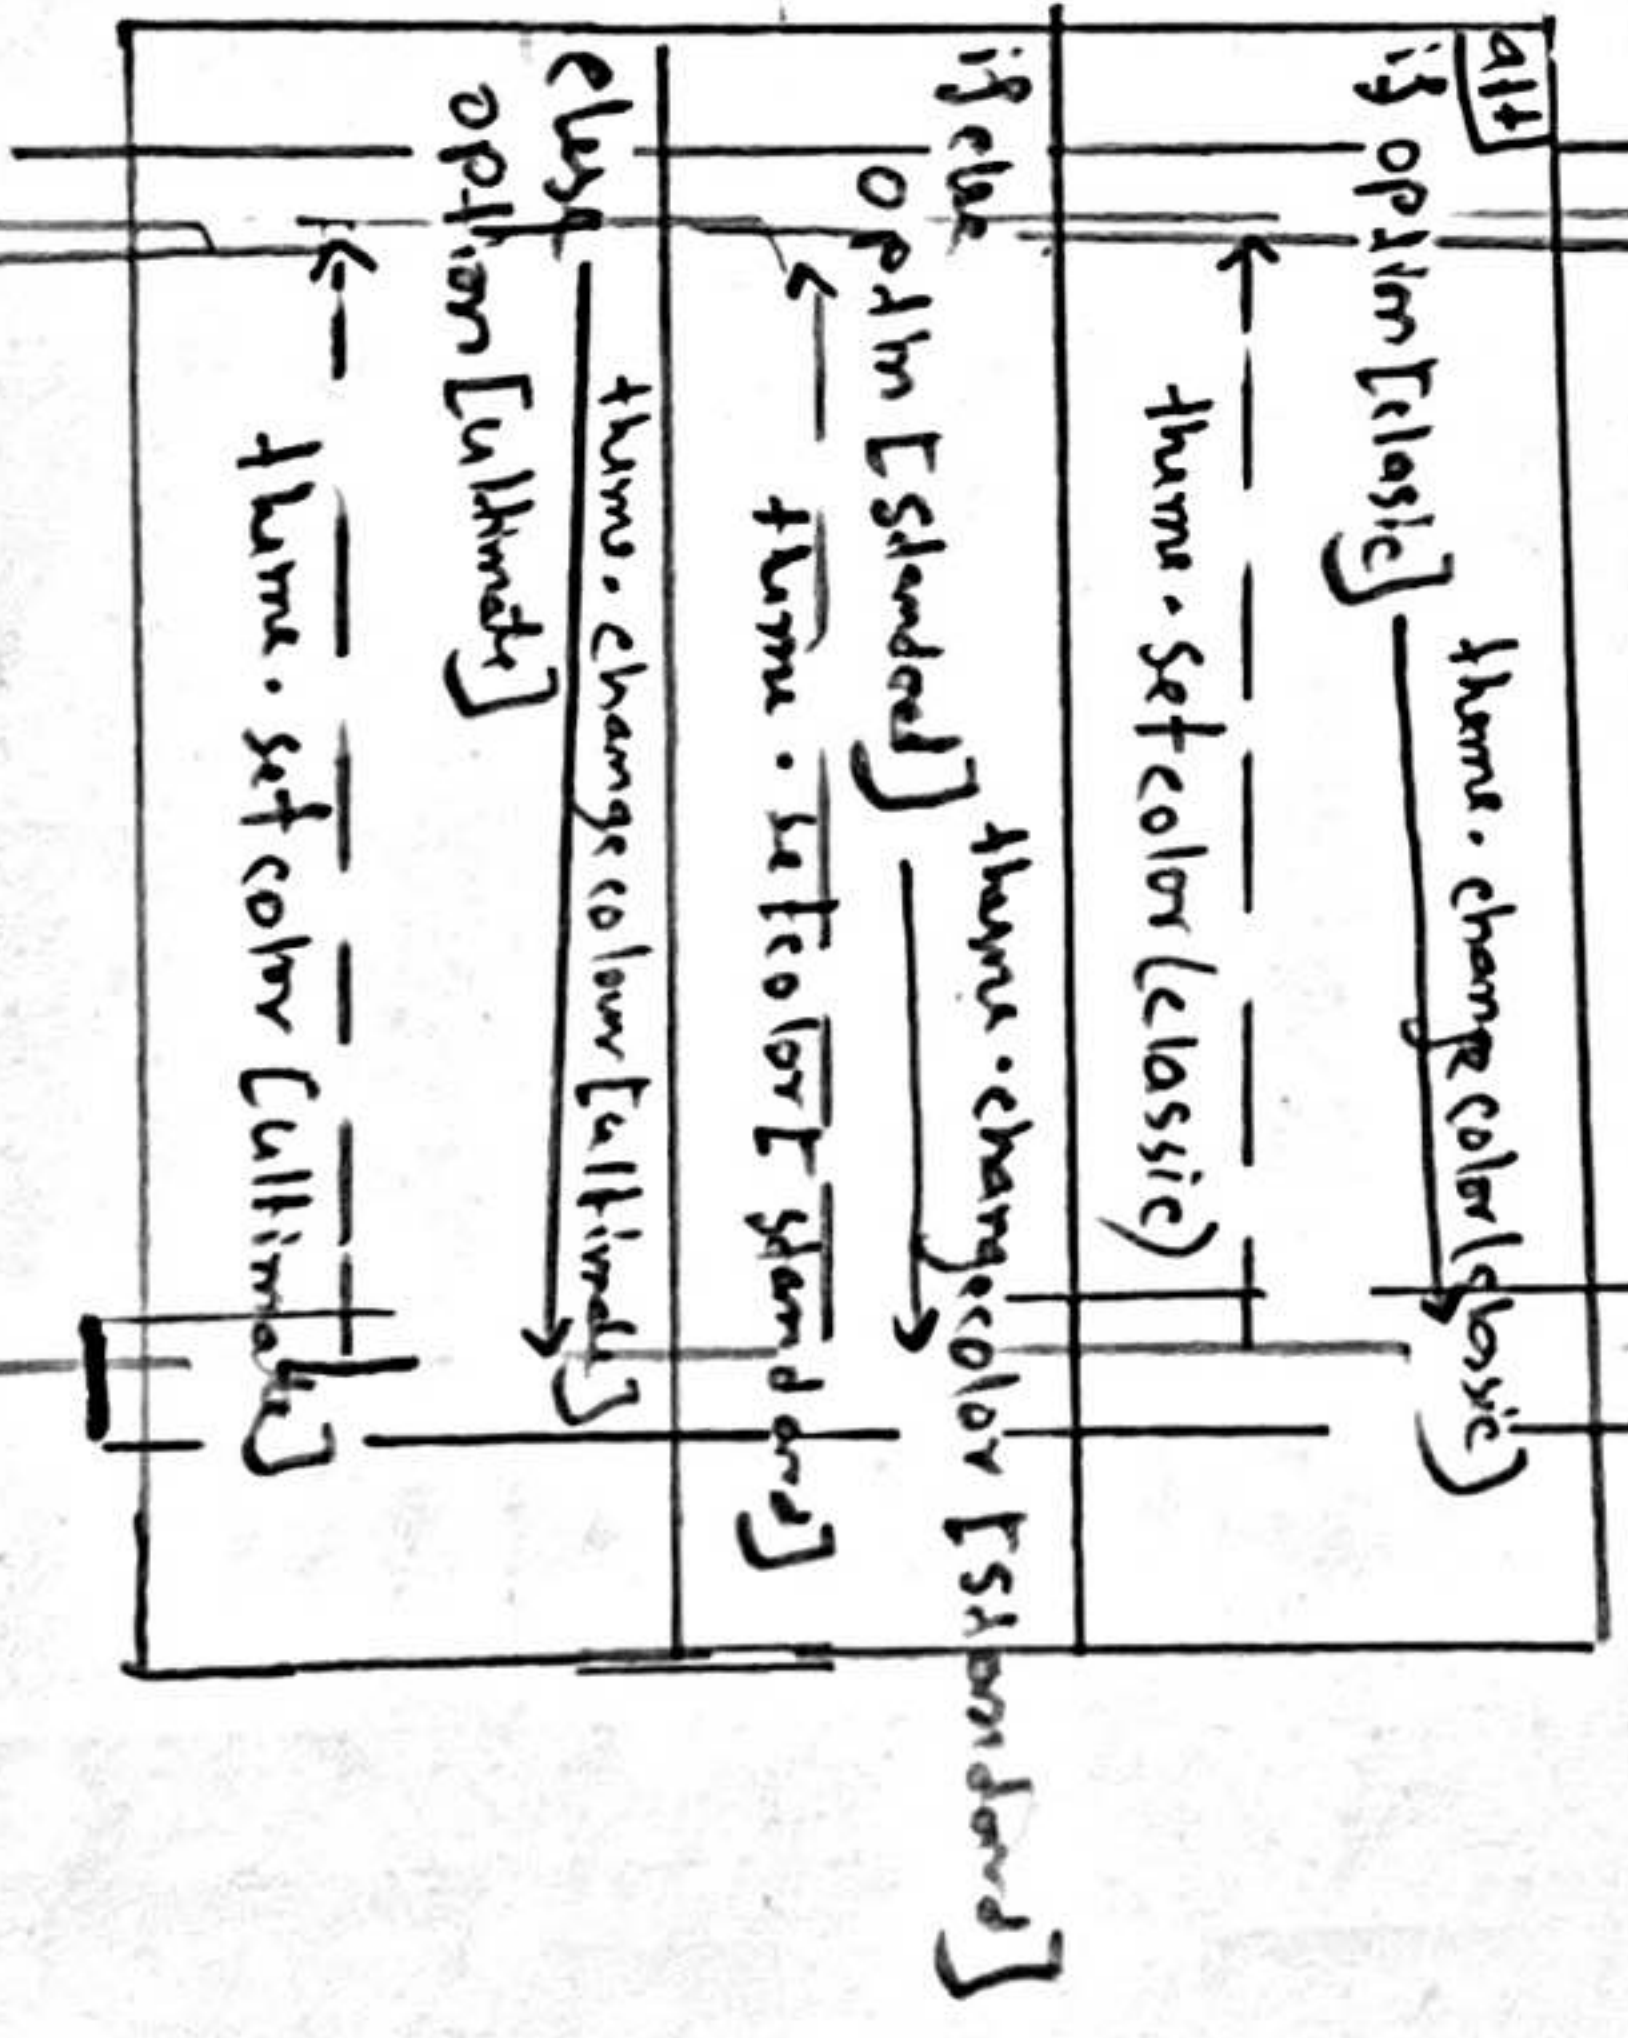 alt
if option [clasic]
theme. change color (classic)
theme. set color (classic)
if else
option [standard]
theme. change color [standard]
theme. set color [standard]
else
theme. change colour [ultimate]
option [ultimate]
theme. set color [ultimate]